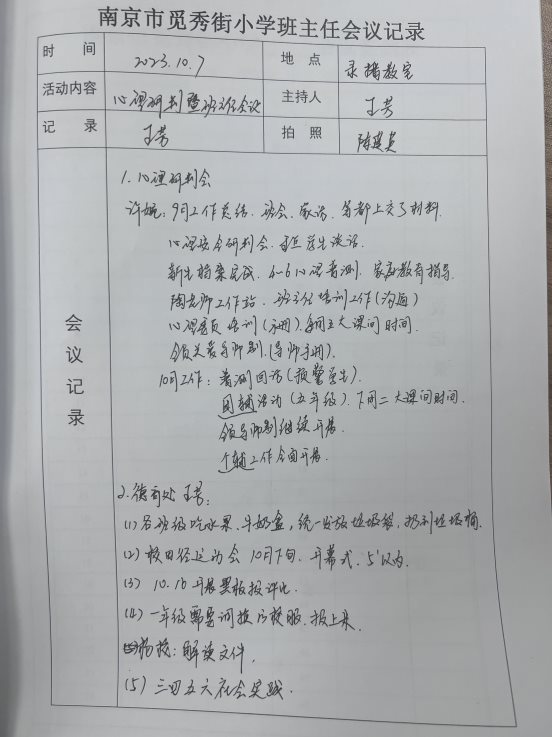 南京市觅秀街小学班主任会议记录
时 间 2023.10.7 地 点 录播教室
活动内容 心理研判暨班主任会议 主持人 王芳
记 录 王芳 拍 照
会议记录
1. 心理研判会
许婉: 9月工作总结. 班会. 家访. 等都上交了材料.
心理安全研判会. 重点学生谈话.
新生档案完成. 4-6心理普测. 家庭教育指导.
陶老师工作站. 班主任培训工作(沟通)
心理委员培训(手册). 每周五大课间时间.
领关爱导师制.(导师手册).
10月工作: 普测回访(预警学生).
团辅活动(五年级). 下周二大课间时间.
领导师制继续开展.
个辅工作全面开展.
2. 德育处 王芳:
(1) 各班级吃水果、牛奶盒, 统一发放垃圾袋, 扔到垃圾桶.
(2) 校田径运动会 10月下旬. 开幕式. 5'以内.
(3) 10.16 开展黑板报评比.
(4) 一年级需要调换的校服. 报上来.
杨校: 解读文件.
(5) 三四五六社会实践.